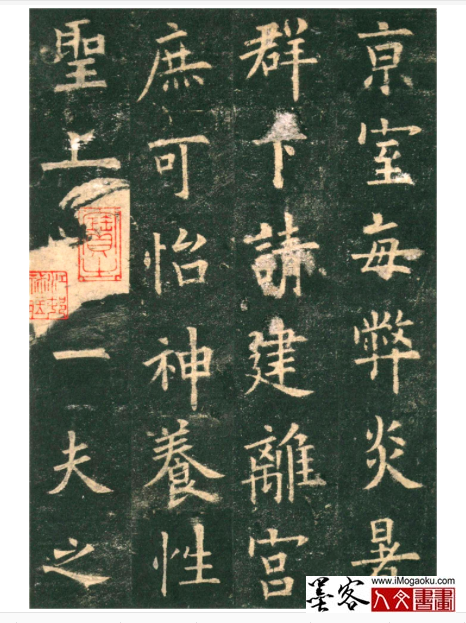 京室每弊炎暑
群下請建離宮
庶可怡神養性
聖上一夫之
www.iMogaoku.com
墨客
人文書畫